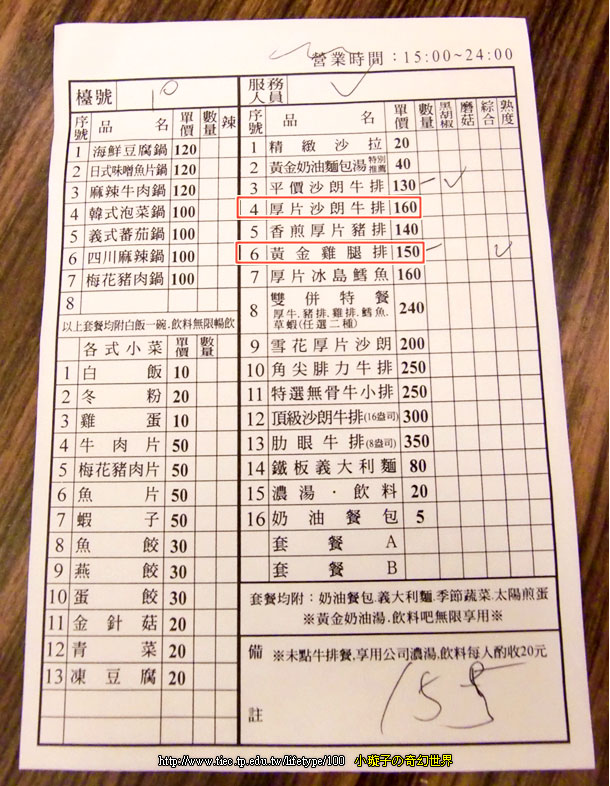 營業時間：15:00~24:00
檯號 10
序號 品名 單價 數量 辣
1 海鮮豆腐鍋 120
2 日式味噌魚片鍋 120
3 麻辣牛肉鍋 120
4 韓式泡菜鍋 100
5 義式蕃茄鍋 100
6 四川麻辣鍋 100
7 梅花豬肉鍋 100
8
以上套餐均附白飯一碗.飲料無限暢飲
各式小菜 單價 數量
1 白飯 10
2 冬粉 20
3 雞蛋 10
4 牛肉片 50
5 梅花豬肉片 50
6 魚片 50
7 蝦子 50
8 魚餃 30
9 燕餃 30
10 蛋餃 30
11 金針菇 20
12 青菜 20
13 凍豆腐 20
服務人員
序號 品名 單價 數量 黑胡椒 磨菇 綜合 熟度
1 精緻沙拉 20
2 黃金奶油麵包湯 特別推薦 40
3 平價沙朗牛排 130
4 厚片沙朗牛排 160
5 香煎厚片豬排 140
6 黃金雞腿排 150
7 厚片冰島鱈魚 160
8 雙併特餐 240
厚牛.豬排.雞排.鱈魚.
草蝦(任選二種)
9 雪花厚片沙朗 200
10 角尖腓力牛排 250
11 特選無骨牛小排 250
12 頂級沙朗牛排(16盎司) 300
13 肋眼牛排(8盎司) 350
14 鐵板義大利麵 80
15 濃湯．飲料 20
16 奶油餐包 5
套餐A
套餐B
套餐均附：奶油餐包.義大利麵.季節蔬菜.太陽煎蛋
※黃金奶油湯.飲料吧無限享用※
備註 ※未點牛排餐,享用公司濃湯,飲料每人酌收20元
155
http://www.tiec.tp.edu.tw/lifetype/100 小璇子の奇幻世界